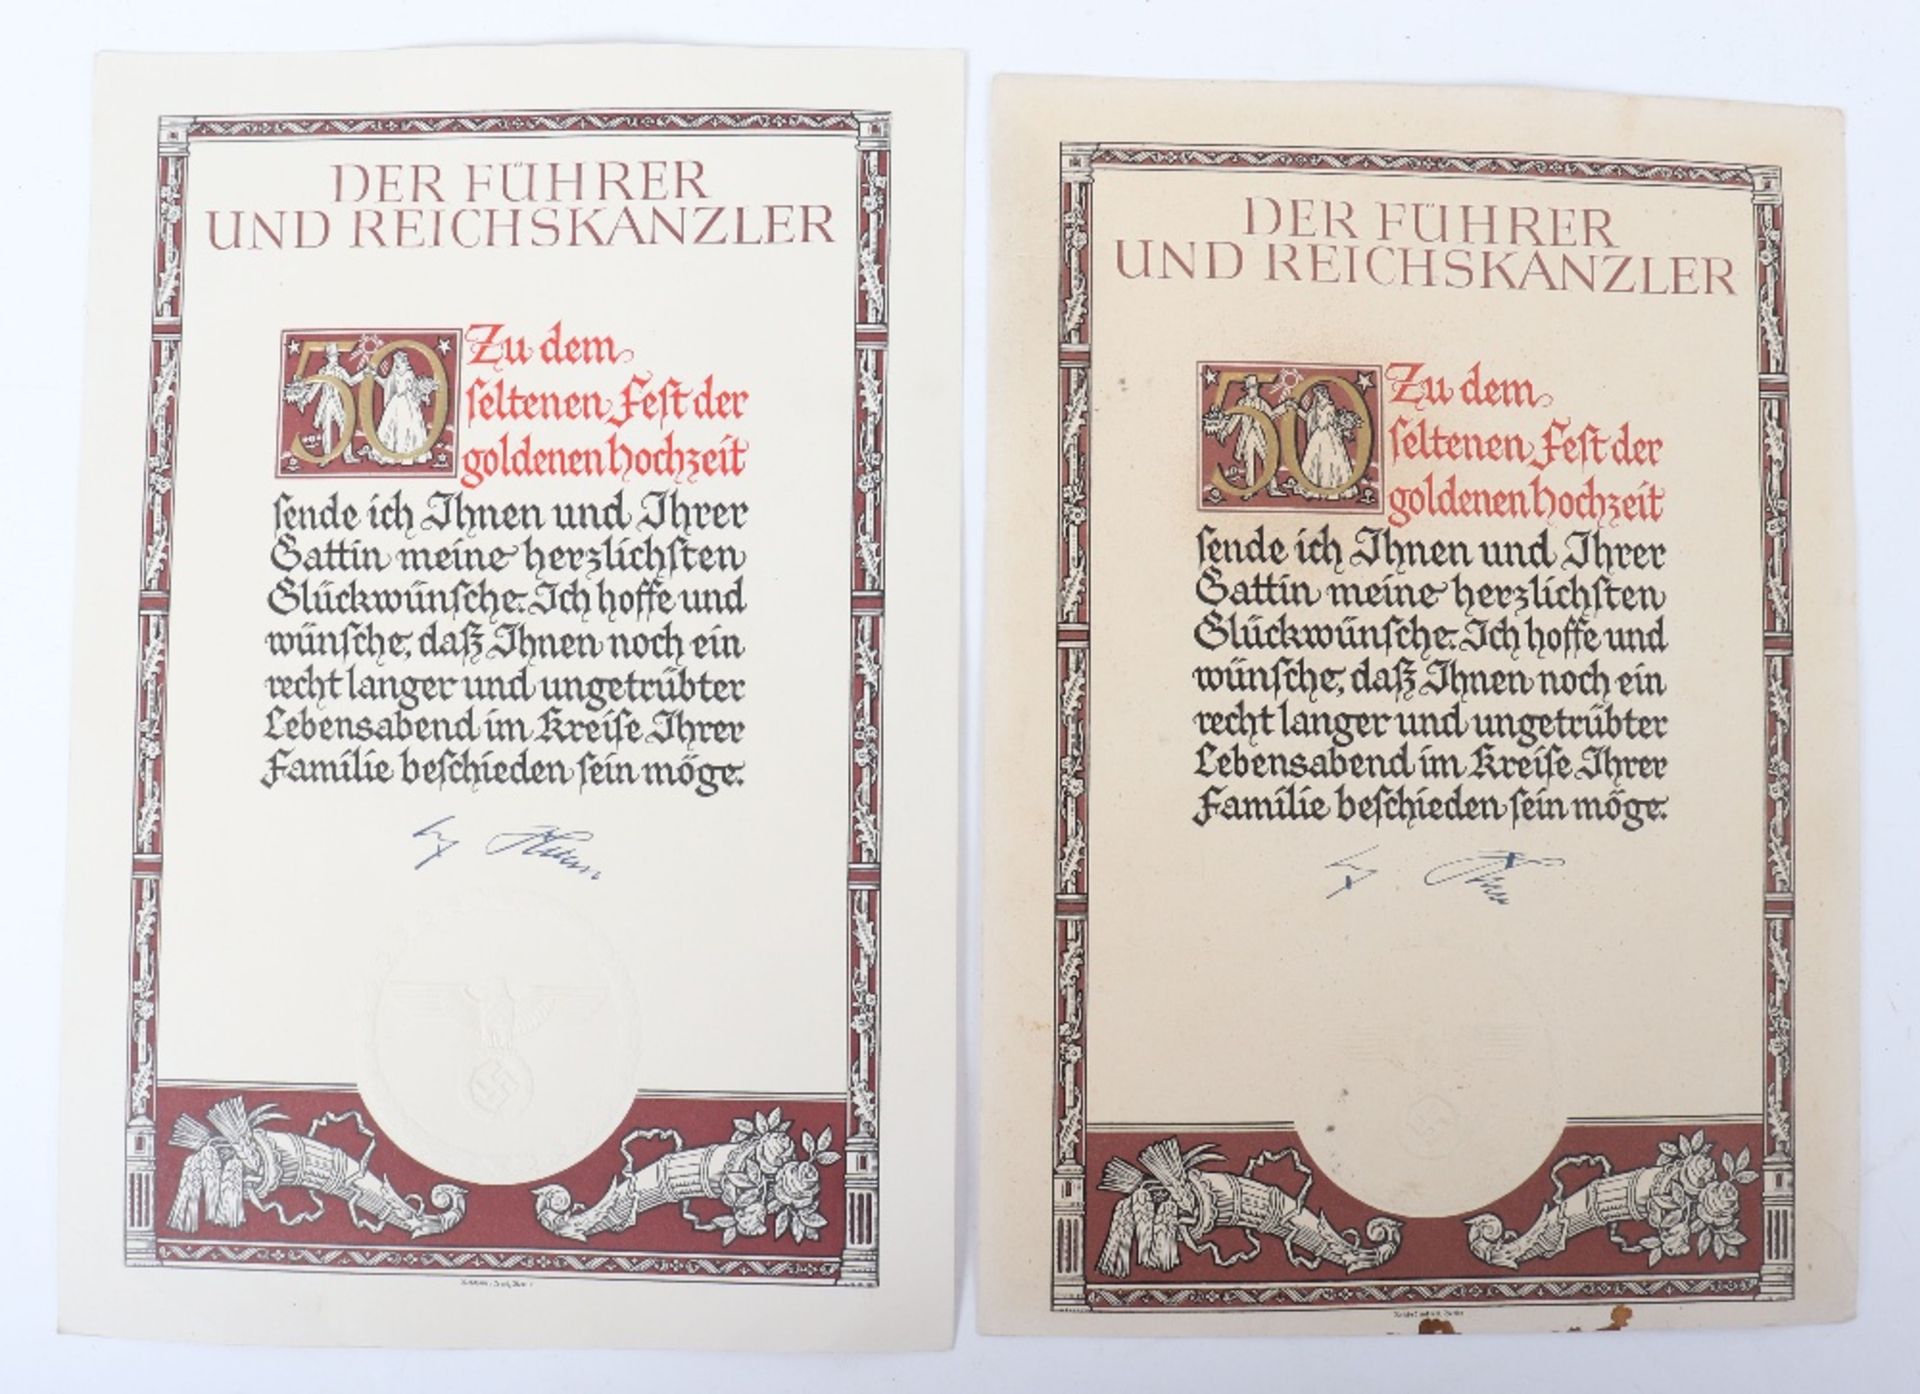 DER FÜHRER
UND REICHSKANZLER
50
Zu dem
seltenen Fest der
goldenen Hochzeit
sende ich Ihnen und Ihrer
Gattin meine herzlichsten
Glückwünsche. Ich hoffe und
wünsche, daß Ihnen noch ein
recht langer und ungetrübter
Lebensabend im Kreise Ihrer
Familie beschieden sein möge.
DER FÜHRER
UND REICHSKANZLER
50
Zu dem
seltenen Fest der
goldenen Hochzeit
sende ich Ihnen und Ihrer
Gattin meine herzlichsten
Glückwünsche. Ich hoffe und
wünsche, daß Ihnen noch ein
recht langer und ungetrübter
Lebensabend im Kreise Ihrer
Familie beschieden sein möge.